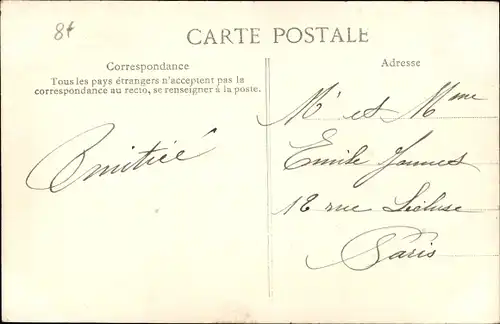 8f
CARTE POSTALE
Correspondance
Tous les pays étrangers n'acceptent pas la
correspondance au recto, se renseigner à la poste.
Amitié
Adresse
Mr et Mme
Emile Jannet
12 rue Lécluse
Paris